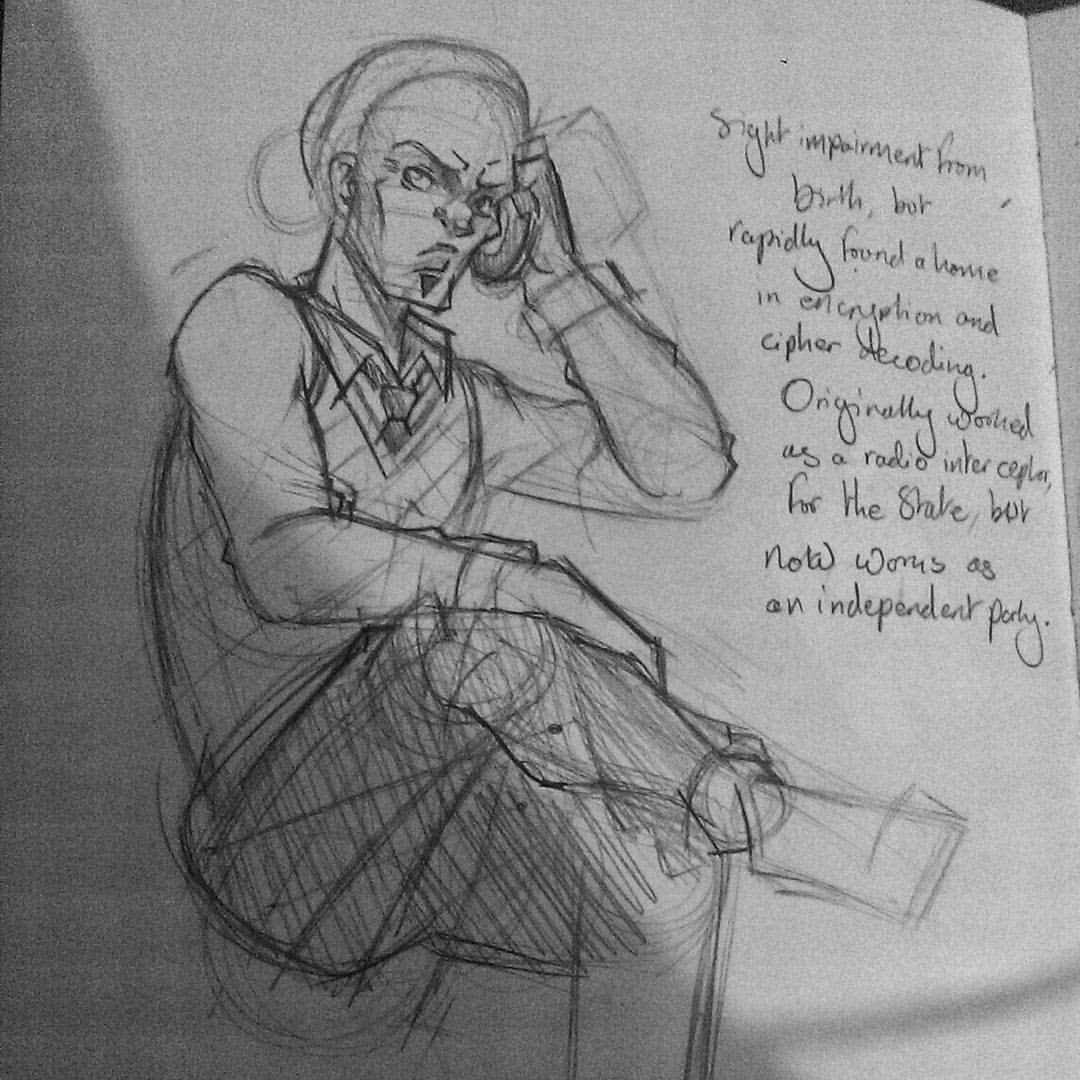 Sight impairment from
birth, but
rapidly found a home
in encryption and
cipher decoding.
Originally worked
as a radio interceptor,
for the State, but
now works as
an independent party.